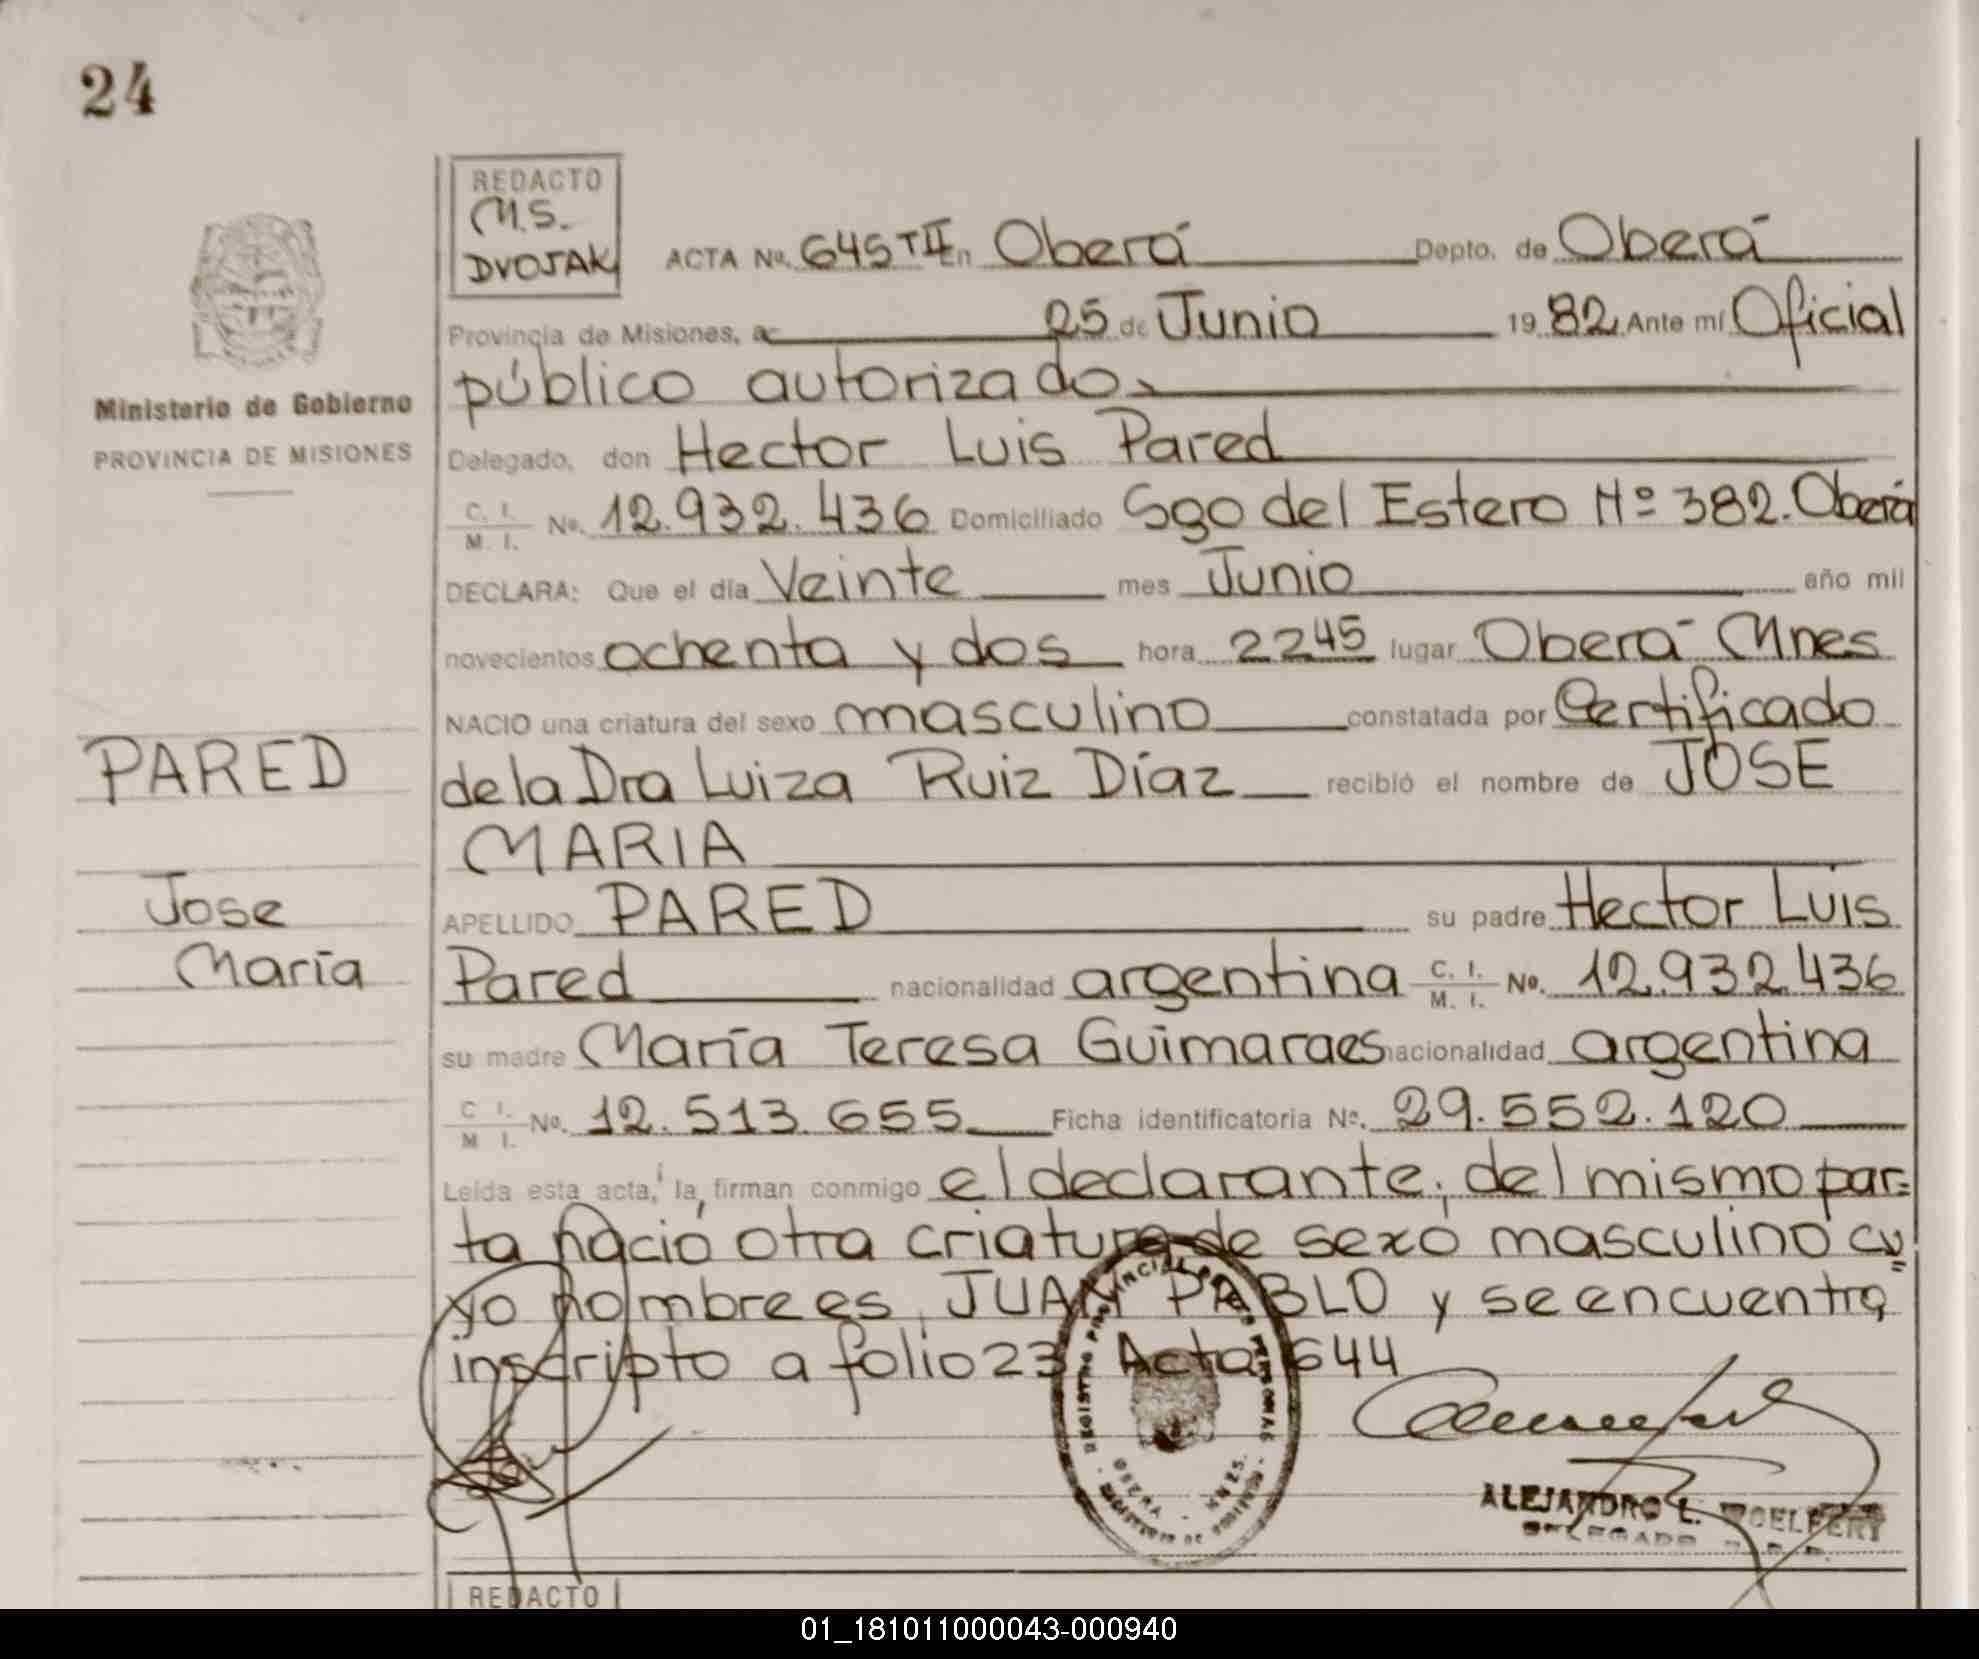 24
REDACTO
M.S.
DVOJAK
ACTA No. 645 T II En Oberá Depto. de Oberá
Provincia de Misiones, a 25 de Junio 19 82 Ante mí Oficial
público autorizado
Ministerio de Gobierno
PROVINCIA DE MISIONES
Delegado, don Hector Luis Pared
C. I. / M. I. No. 12.932.436 Domiciliado Sgo del Estero Nº 382. Oberá
DECLARA: Que el día Veinte mes Junio año mil
novecientos ochenta y dos hora 22 45 lugar Oberá Mnes
NACIO una criatura del sexo masculino constatada por Certificado
de la Dra Luiza Ruiz Díaz recibió el nombre de JOSE
MARIA
PARED
Jose
María
APELLIDO PARED su padre Hector Luis
Pared nacionalidad argentina C. I. / M. I. No. 12.932.436
su madre María Teresa Guimaraes nacionalidad argentina
C. I. / M. I. No. 12.513.655 Ficha identificatoria No. 29.552.120
Leída esta acta, la firman conmigo el declarante, del mismo par=
to nació otra criatura de sexo masculino cu=
yo nombre es JUAN PABLO y se encuentra
inscripto a folio 23 Acta 644
REGISTRO PROVINCIAL DE LAS PERSONAS
OBERA - MNES.
ALEJANDRO L.
DELEGADO
REDACTO
01_181011000043-000940